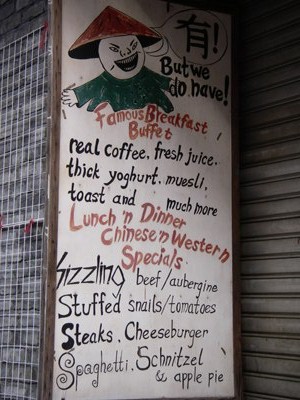 有!
But we
do have!
Famous Breakfast
Buffet
real coffee, fresh juice,
thick yoghurt, muesli,
toast and much more
Lunch 'n Dinner
Chinese 'n Western
Specials
Sizzling beef/aubergine
Stuffed snails/tomatoes
Steaks. Cheeseburger
Spaghetti. Schnitzel
& apple pie